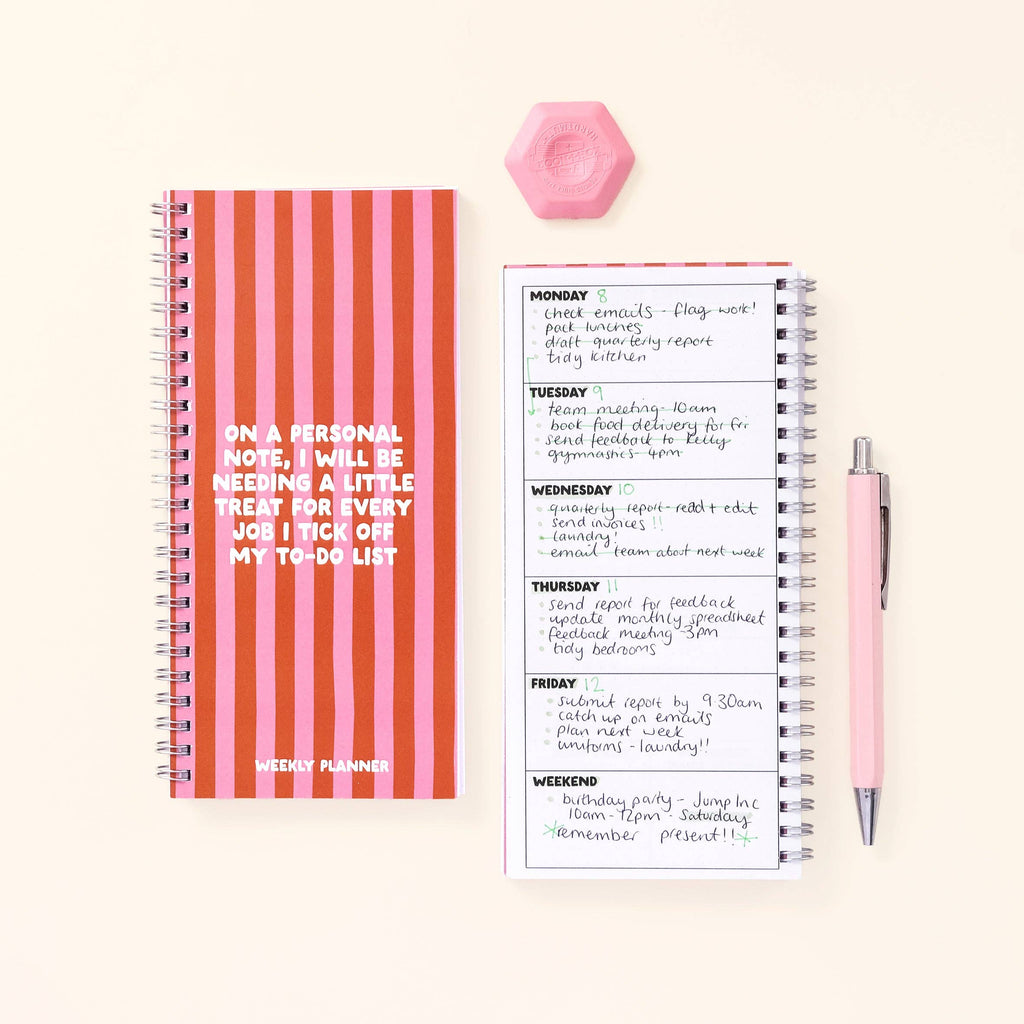 ON A PERSONAL
NOTE, I WILL BE
NEEDING A LITTLE
TREAT FOR EVERY
JOB I TICK OFF
MY TO-DO LIST
WEEKLY PLANNER
MONDAY 8
check emails - flag work!
pack lunches
draft quarterly report
tidy kitchen
TUESDAY 9
team meeting - 10am
book food delivery for fri
send feedback to Kelly
gymnastics - 4pm
WEDNESDAY 10
quarterly report - read + edit
send invoices !!
laundry!
email team about next week
THURSDAY 11
send report for feedback
update monthly spreadsheet
feedback meeting - 3pm
tidy bedrooms
FRIDAY 12
submit report by 9.30am
catch up on emails
plan next week
uniforms - laundry!!
WEEKEND
birthday party - Jump Inc
10am - 12pm - Saturday
*remember present!!*